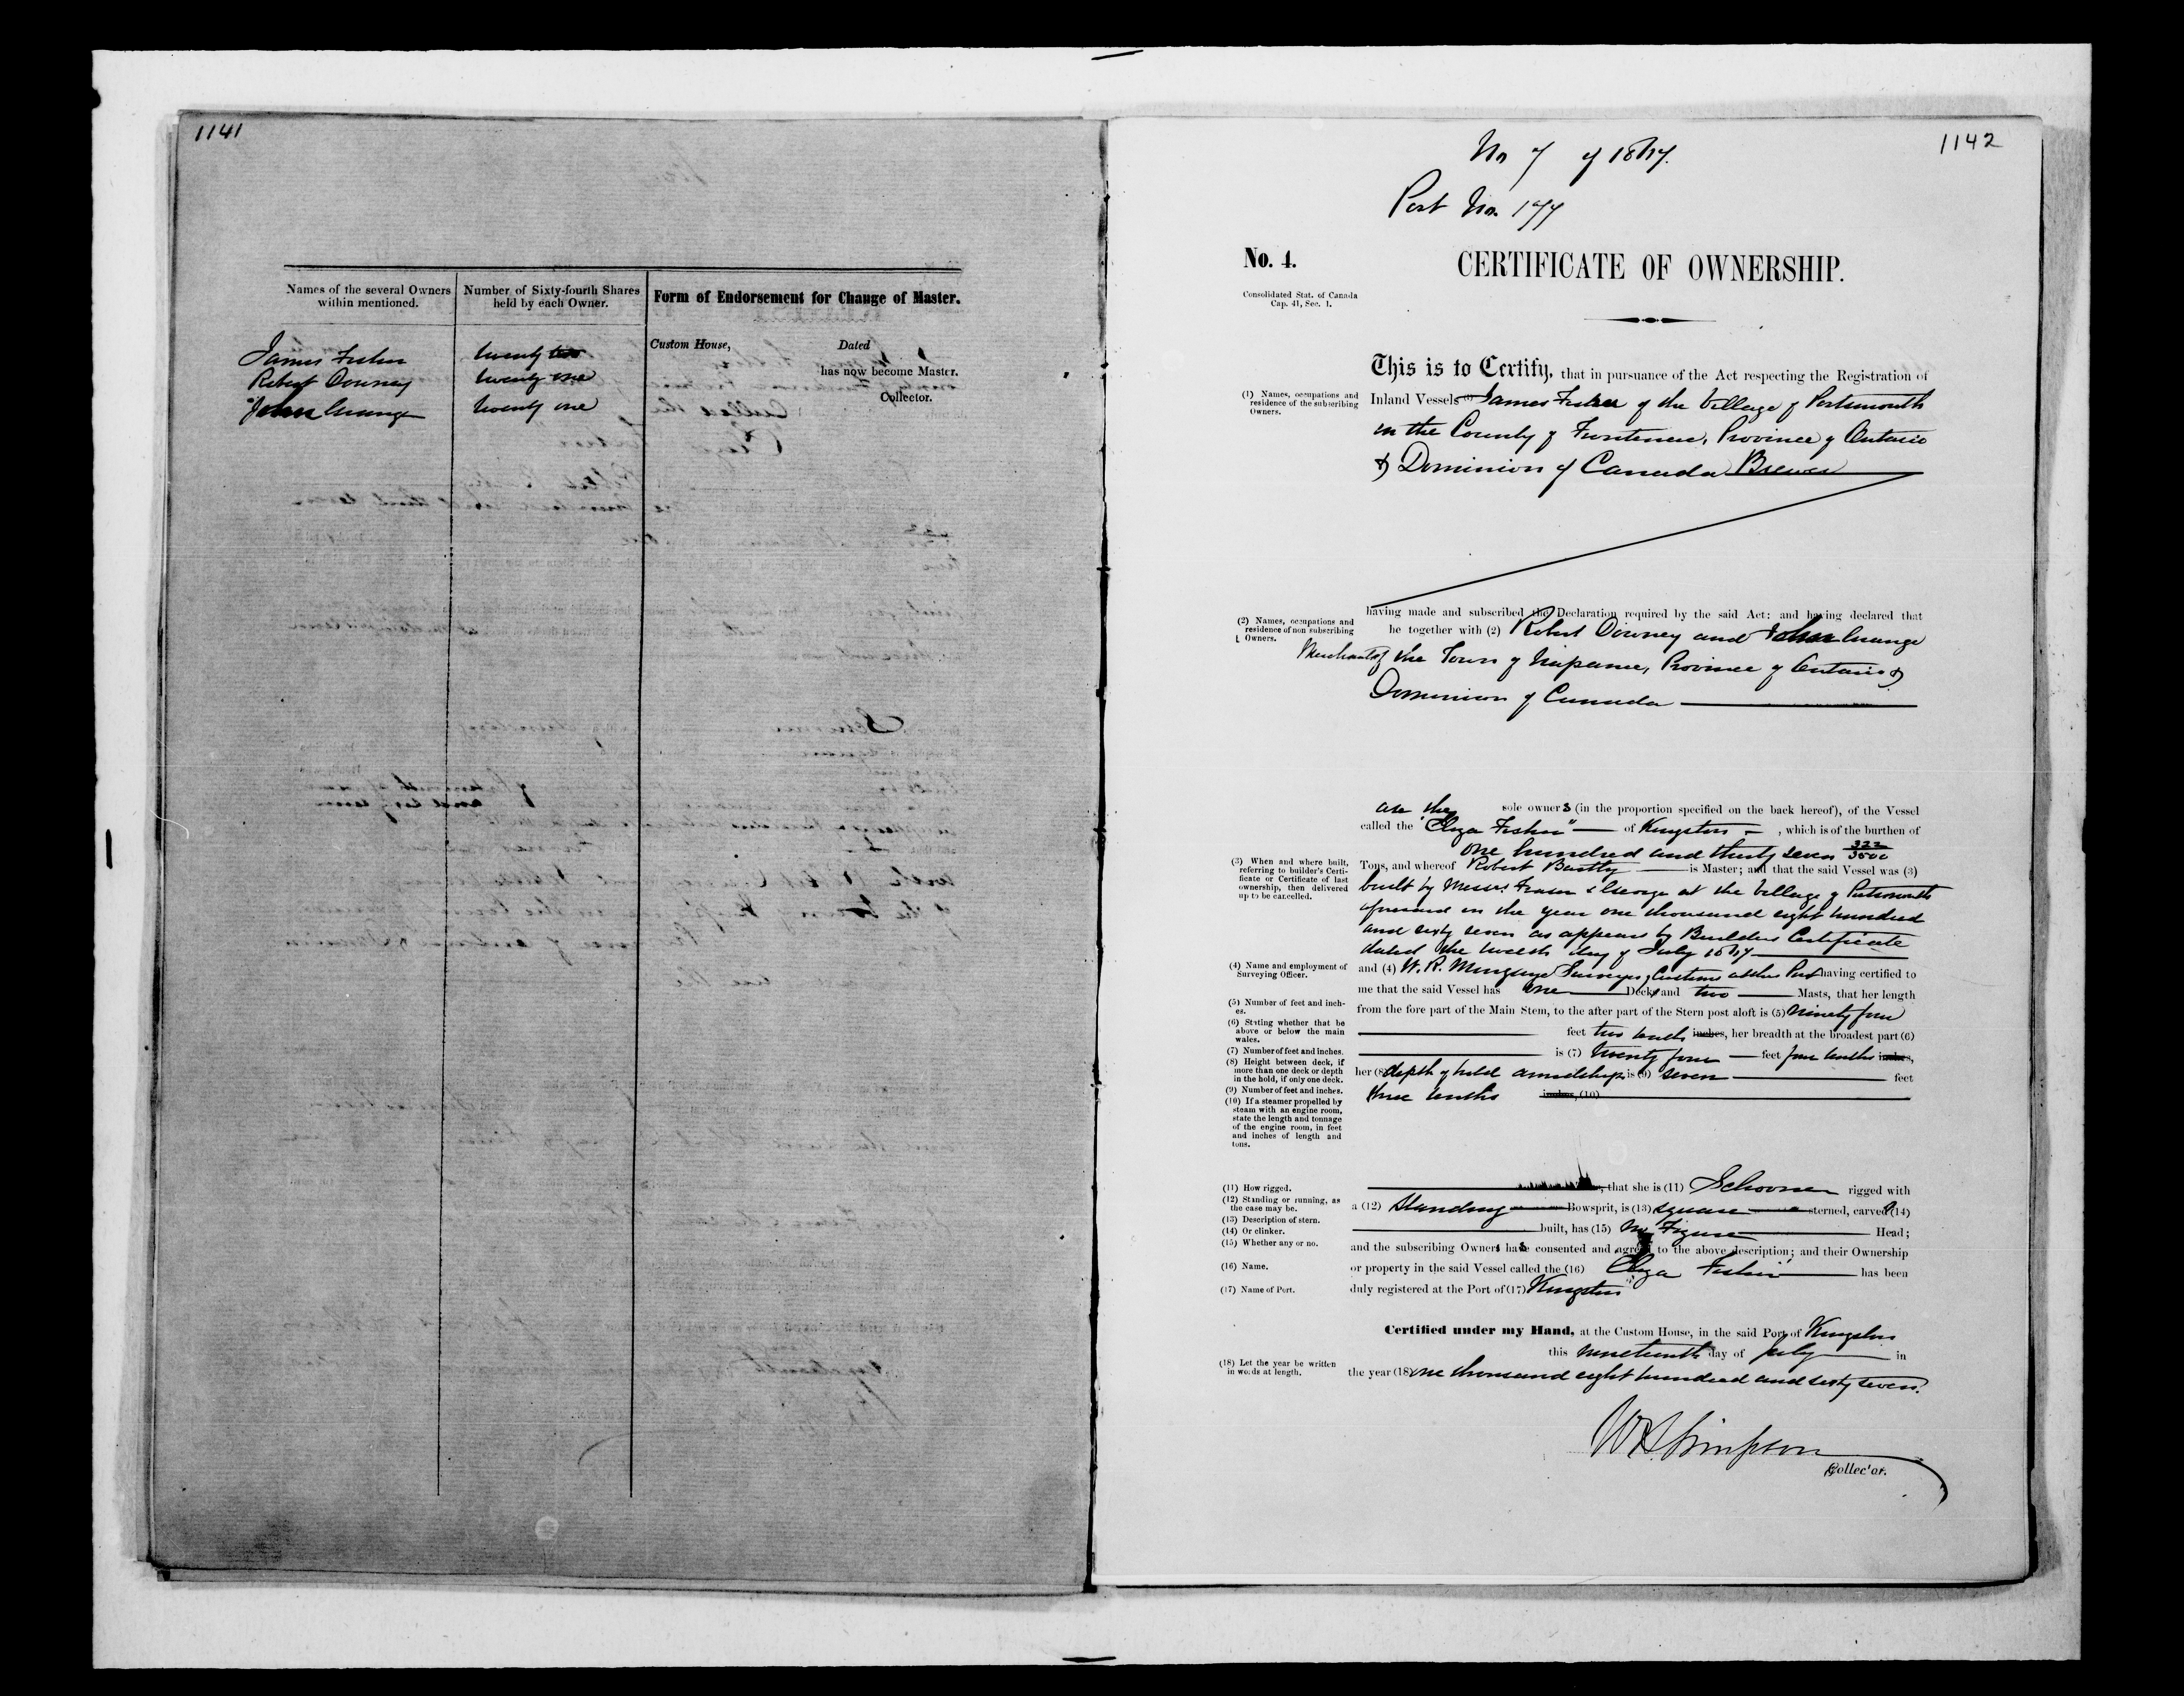 1141
Names of the several Owners within mentioned.
Number of Sixty-fourth Shares held by each Owner.
Form of Endorsement for Change of Master.
James Fisher twenty two
Robert Downey twenty one
John Grange twenty one
Custom House, Dated
has now become Master.
Collector.
1142
No 7 of 1867.
Port No. 177
No. 4.
CERTIFICATE OF OWNERSHIP.
Consolidated Stat. of Canada
Cap. 41, Sec. 1.
This is to Certify, that in pursuance of the Act respecting the Registration of
(1) Names, occupations and
residence of the subscribing
Owners.
Inland Vessels (1) James Fisher of the Village of Portsmouth
in the County of Frontenac, Province of Ontario
& Dominion of Canada Brewer
having made and subscribed the Declaration required by the said Act: and having declared that
(2) Names, occupations and
residence of non subscribing
Owners.
he together with (2) Robert Downey and John Grange
Merchants of the Town of Napanee, Province of Ontario &
Dominion of Canada
are the sole owners (in the proportion specified on the back hereof), of the Vessel
called the "Eliza Fisher" of Kingston, which is of the burthen of
one hundred and thirty seven 322/3500
(3) When and where built,
referring to builder's Certi-
ficate or Certificate of last
ownership, then delivered
up to be cancelled.
Tons, and whereof Robert Bartly is Master; and that the said Vessel was (3)
built by Messrs Fraser & George at the Village of Portsmouth
aforesaid in the year one thousand eight hundred
and sixty seven as appears by Builders Certificate
dated the twelth day of July 1867
(4) Name and employment of
Surveying Officer.
and (4) W. R. Mingaye Surveyor, Customs at this Port having certified to
me that the said Vessel has one Deck, and two Masts, that her length
(5) Number of feet and inch-
es.
from the fore part of the Main Stem, to the after part of the Stern post aloft is (5) Ninety four
(6) Stating whether that be
above or below the main
wales.
feet two tenths inches, her breadth at the broadest part (6)
(7) Number of feet and inches.
is (7) twenty four feet four tenths inches,
(8) Height between deck, if
more than one deck or depth
in the hold, if only one deck.
her (8) depth of hold amidships is (9) seven feet
(9) Number of feet and inches.
three tenths inches, (10)
(10) If a steamer propelled by
steam with an engine room,
state the length and tonnage
of the engine room, in feet
and inches of length and
tons.
(11) How rigged.
, that she is (11) Schooner rigged with
(12) Standing or running, as
the case may be.
a (12) Standing Bowsprit, is (13) square sterned, carvel (14)
(13) Description of stern.
(14) Or clinker.
built, has (15) No Figure Head;
(15) Whether any or no.
and the subscribing Owners have consented and agreed to the above description; and their Ownership
(16) Name.
or property in the said Vessel called the (16) Eliza Fisher has been
(17) Name of Port.
duly registered at the Port of (17) Kingston
Certified under my Hand, at the Custom House, in the said Port of Kingston
this nineteenth day of July in
(18) Let the year be written
in words at length.
the year (18) one thousand eight hundred and sixty seven.
Collector.